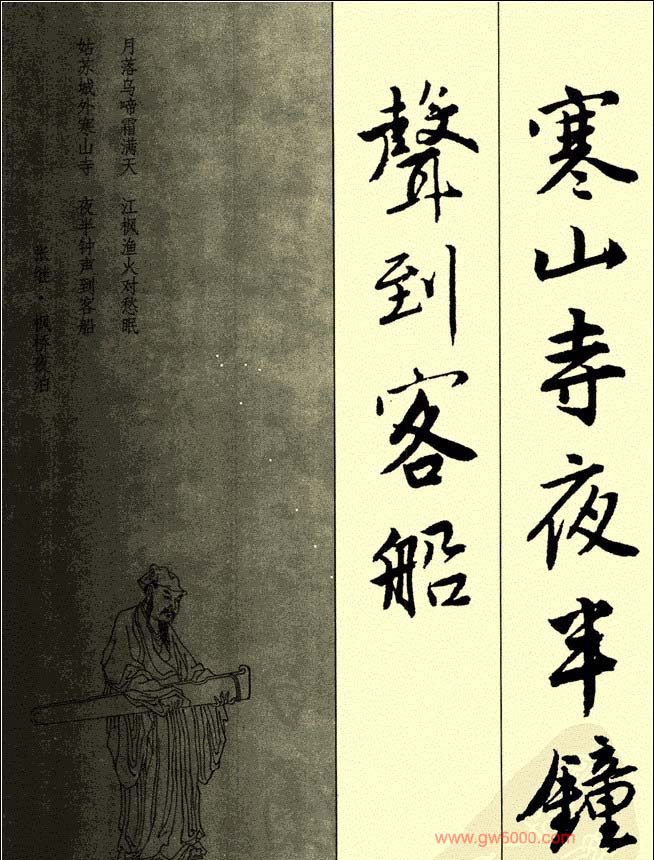 寒山寺夜半鐘
聲到客船
月落乌啼霜满天 江枫渔火对愁眠
姑苏城外寒山寺 夜半钟声到客船
张继·枫桥夜泊
www.gw5000.com